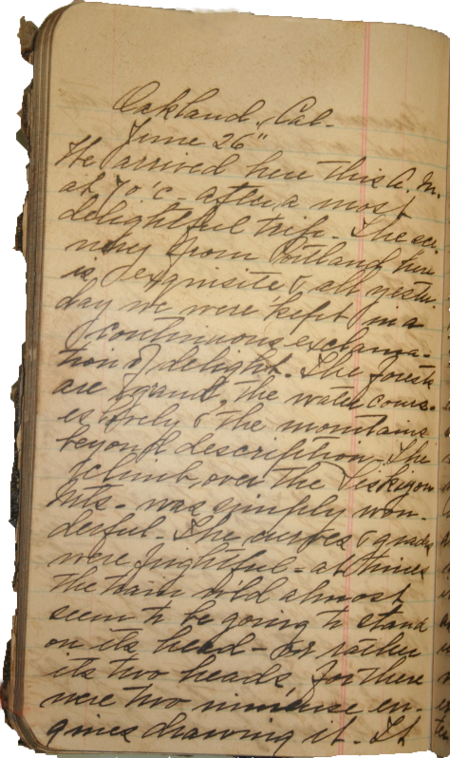 Oakland, Cal.
June 26"
We arrived here this A.M.
at 7 o'c - after a most
delightful trip - The sce-
nery from Portland here
is exquisite & all yester-
day we were kept in a
continuous exclama-
tion of delight. The forests
are grand, the water cours-
es lovely & the mountains
beyond description - The
climb over the Siskiyou
Mts - was simply won-
derful - The curves & grades
were frightful - at times
the train w'ld almost
seem to be going to stand
on its head - or rather
its two heads, for there
were two immense en-
gines drawing it. It